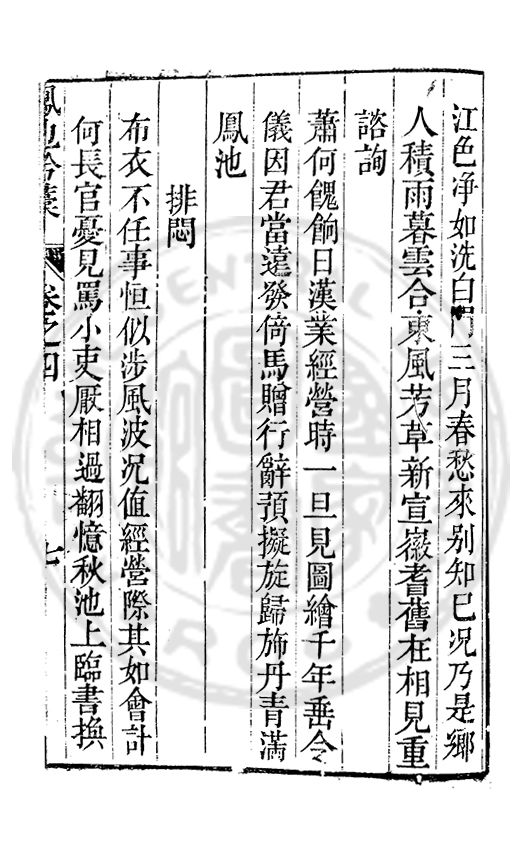 江色淨如洗白門三月春愁來别知巳况乃是鄉
人積雨暮雲合東風芳草新宣嶽耆舊在相見重
諮詢
蕭何餽餉日漢業經營時一旦見圖繪千年垂令
儀因君當遠發倚馬贈行辭預擬旋歸斾丹青滿
鳳池
排悶
布衣不任事恒似涉風波况值經營際其如會計
何長官憂見罵小吏厭相過翻憶秋池上臨書換
鳳池吟藁 卷之四 七